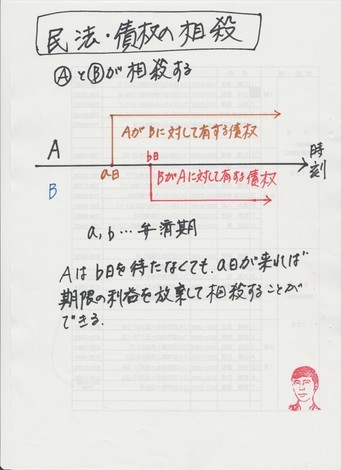 民法・債権の相殺
ⒶとⒷが相殺する
AがBに対して有する債権
A
時刻
a日
b日
B
BがAに対して有する債権
a,b…弁済期
Aはb日を待たなくても、a日が来れば
期限の利益を放棄して相殺することが
できる.